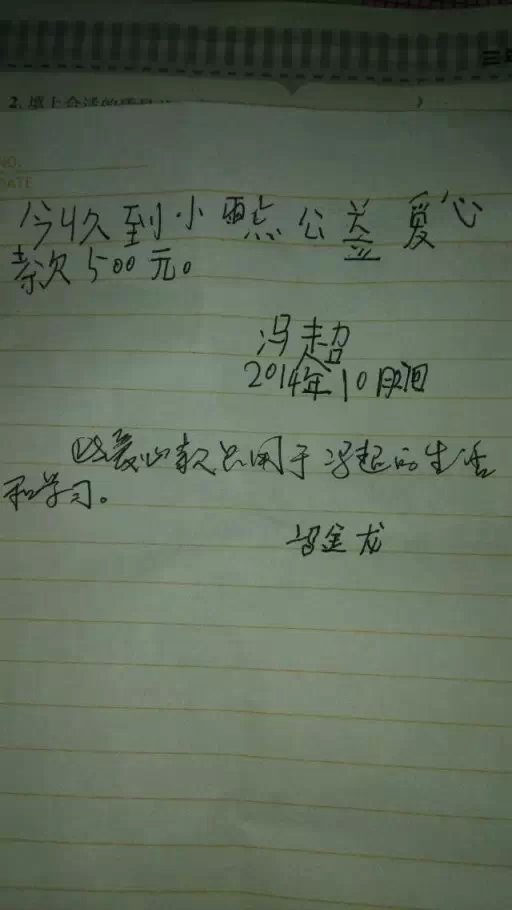 2. 填上合适的质量单位
NO.
DATE
今收到小雨点公益爱心
款次500元。
冯超
2014年10月2日
此爱心款只用于冯超的生活
和学习。
冯金龙